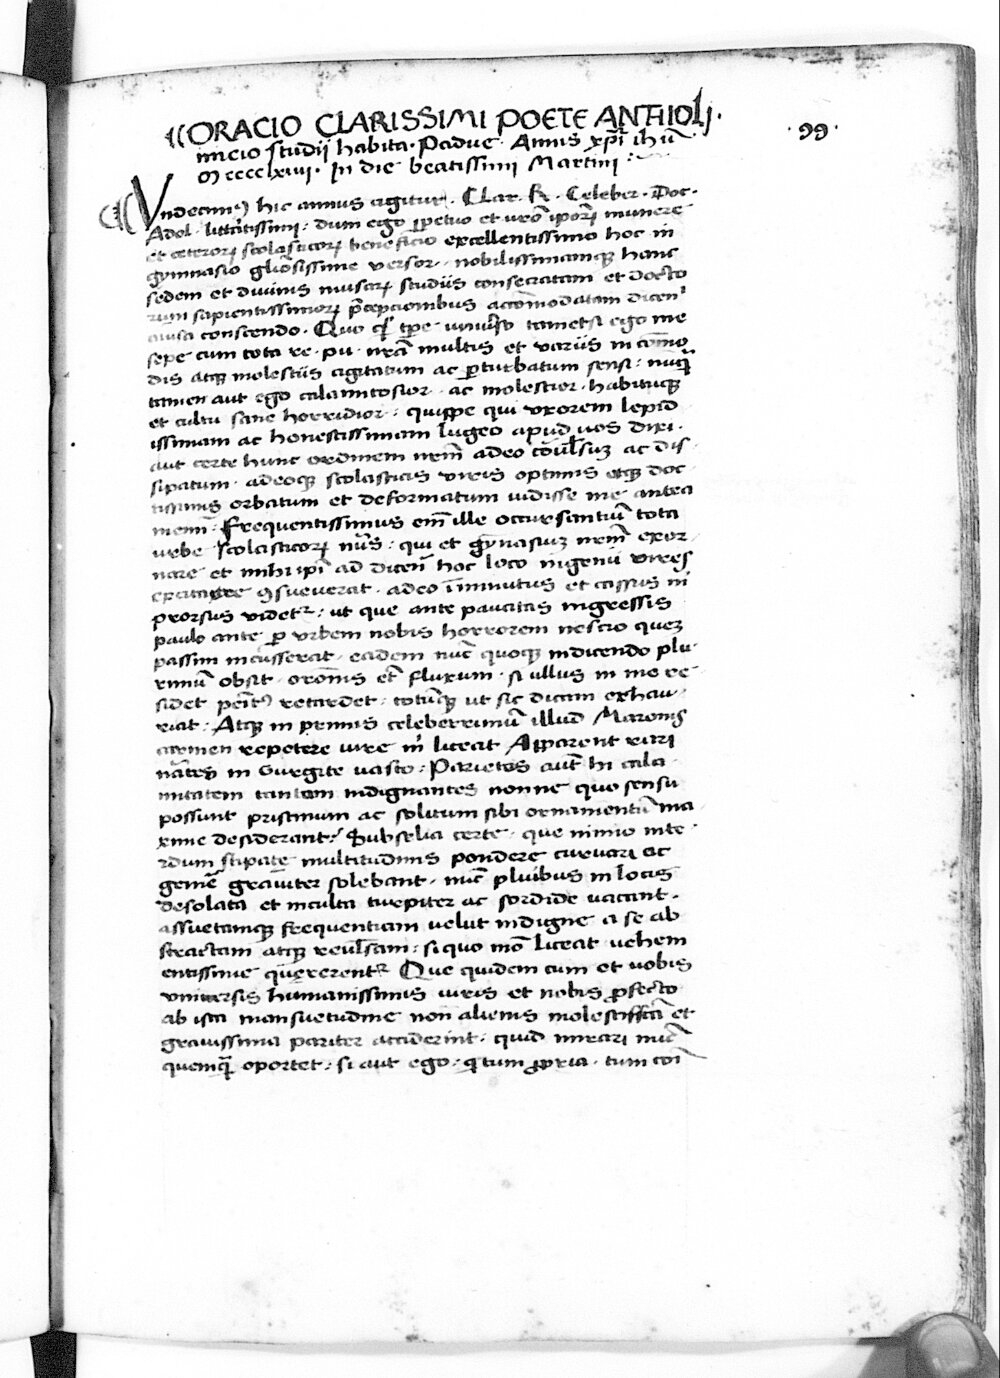 ORACIO CLARISSIMI POETE ANTHIOLI.
inicio studij habita. Padue. Annis xpi ihu
M cccc lxiiii. In die beatissimi Martini:
99
Vndecimus hic annus agitur. Clar. R. Celeber. Doc.
Adol. litteratissimi: dum ego perpetuo et uro ipsorum munere
et ceterorum scolasticorum beneficio excellentissimo hoc in
gymnasio gliosissime versor. nobilissimamque hanc
sedem et diuinis musarum studiis consecratam et Docto
rum sapientissimorum preceptionibus accomodatam dicen
conscendo. Quo tpe uniuerso tametsi ego me
sepe cum tota re. pu. nra multis et variis incomo
dis atque molestiis agitatum ac perturbatum sensi: nunquam
tamen aut ego calamitosior. ac molestior. habituque
et cultu sane horridior: quippe qui vxorem lepid
issimam ac honestissimam lugeo apud uos dixi.
aut certe hunc ordinem nrm adeo conuulsum ac dis
sipatum. adeoque scolasticis viris optimis atque doc
tissimis orbatum et deformatum uidisse me antea
memini. Frequentissimus em ille occursantium tota
urbe scolasticorum nus: qui et gynasium nrm exor
nare et mihi ipi ad dicendum hoc loco ingenii vires
excitare consueuerat. adeo imminutus et cassus
prorsus videtur: ut que ante paucitas ingressis
paulo ante per vrbem nobis horrorem nescio quem
passim incusserat. eadem nunc quoque in dicendo plu
rimum obsit. oronis etiam fluxum. si ullus in me re
sidet penitus retardet. totumque ut sic dicam exhau
riat. Atque in primis celeberrimum illud Maronis
carmen repetere iure mi liceat Apparent rari
nantes in Gurgite uasto. Parietes aut hi cala
mitatem tantam indignantes nonne quo sensu
possunt pristinum ac solitum sibi ornamentum ma
xime desiderant? Subselia certe. que nimio inte
rdum stipate multitudinis pondere curuari ac
gemere grauiter solebant. nunc pluribus in locis
desolata et inculta turpiter ac sordide vacant.
assuetamque frequentiam velut indigne a se ab
stractam atque reuulsam: si quo modo liceat. vehem
entissime quererentur. Que quidem cum et uobis
vniuersis humanissimis uiris et nobis profecto
ab ista mansuetudine non alienis et
grauissima pariter acciderint. quid mirari nunc
quemquam oportet. si aut ego. tum propria. tum coi